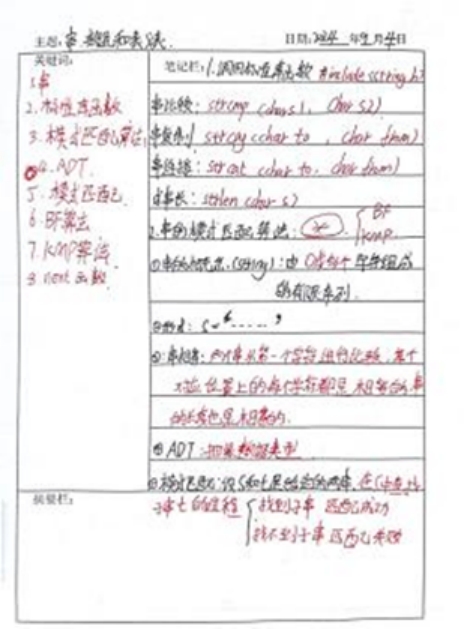 主题: 串、数组和广义表.
日期: 2024 年9月4日
关键词:
1.串
2.标准库函数
3.模式匹配算法
4.ADT.
5.模式匹配.
6.BF算法
7.KMP算法
8.next函数
笔记栏: 1.调用标准库函数 #include<string.h>
串比较: strcmp (char s1, char s2)
串复制 strcpy (char to , char from)
串连接: strcat (char to, char from)
求串长: strlen (char s)
2.串的模式匹配算法: { BF
KMP.
①串的(string): 由0或多个字符组成
的有限序列.
S="......"
③串相等: 两个串从第一个字符进行比较, 每个
对应位置上的每个字符都是相等的, 串
的长度也是相等的.
④ADT: 抽象数据类型
⑤模式匹配: 设S和t是给定的两串, 在S中
子串t的过程 { 找到子串 匹配成功
找不到子串 匹配失败
摘要栏: